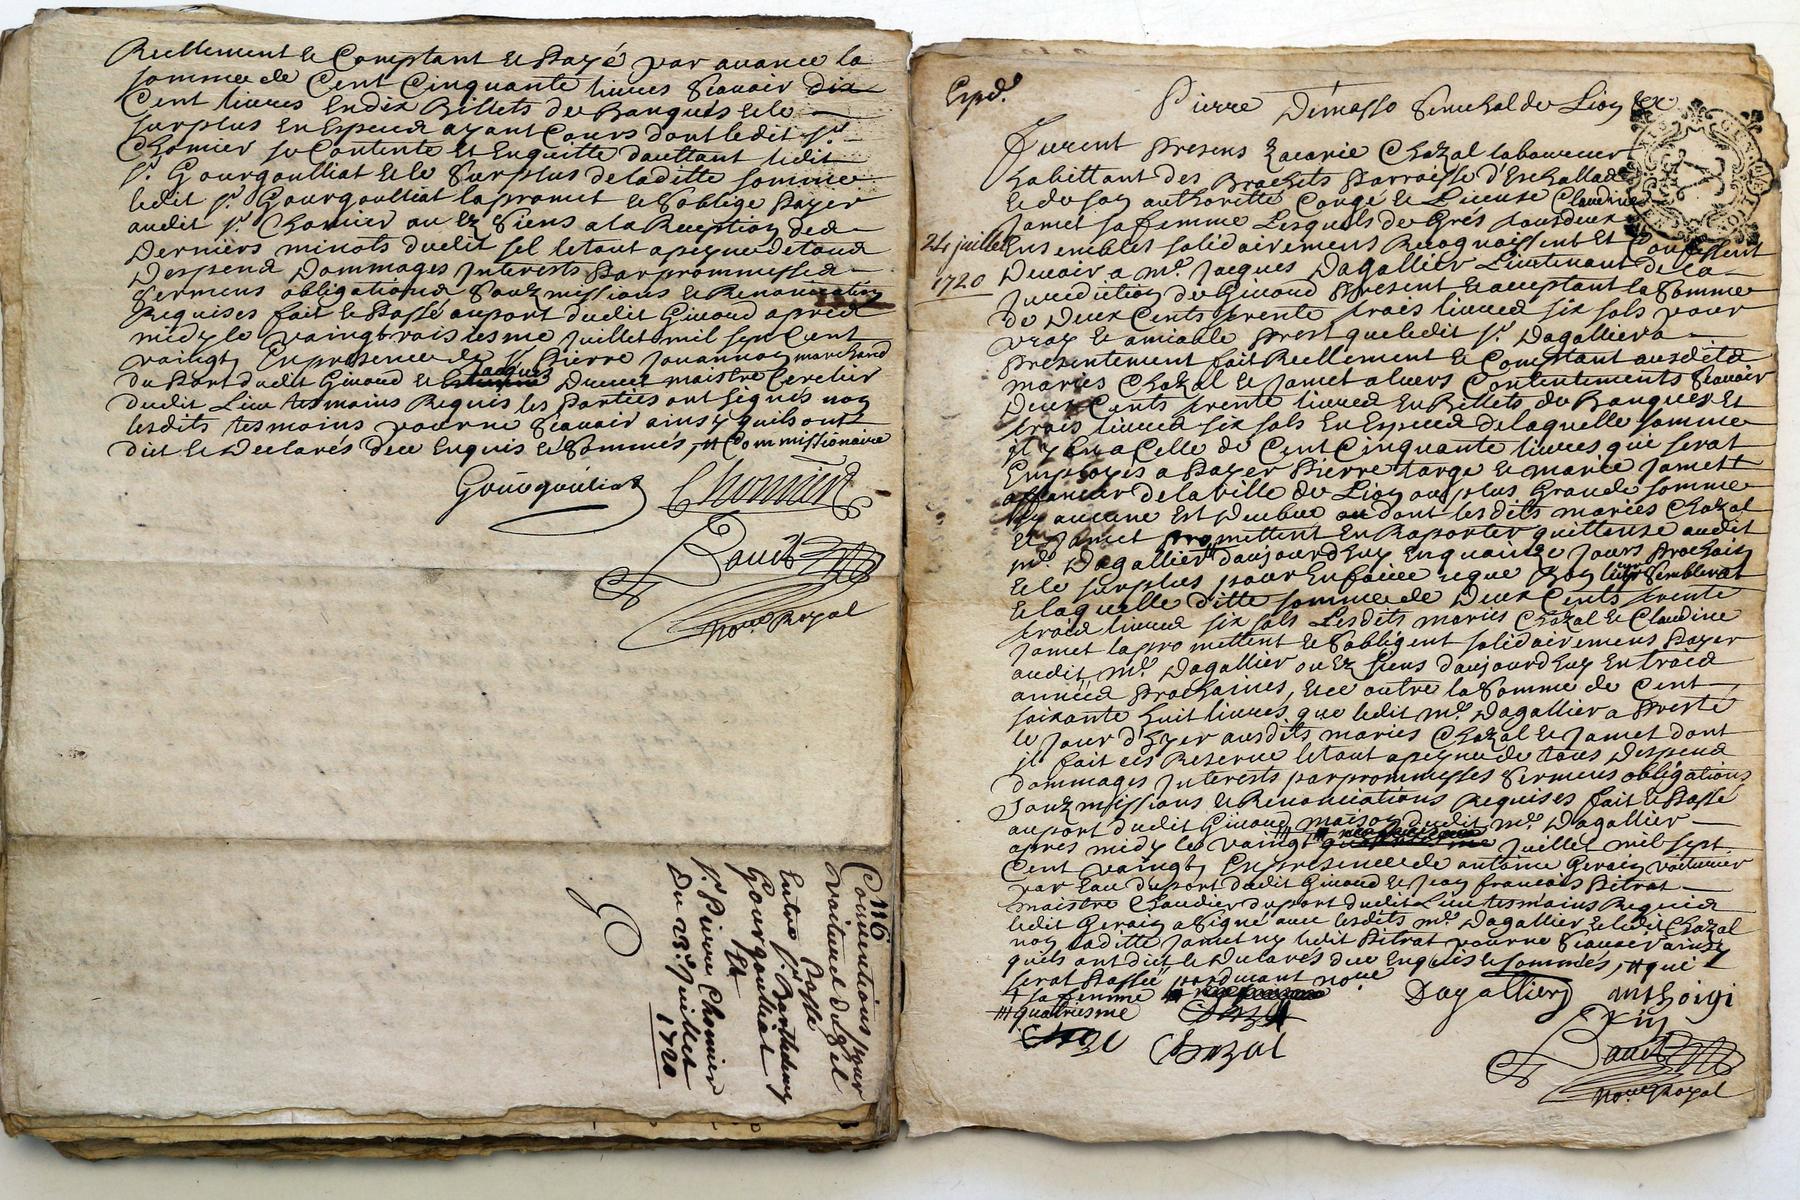 Reellement & Comptant & Payé par avance la
somme de Cent Cinquante livres Scavoir dix
Cent livres En dix Billets de Banques & le
surplus En Espece ayant Cours dont ledit sr
Chomier se Contente Et Enquitte dauttant ledit
sr Gourgoulliat & le Surplus de laditte somme
ledit sr Gourgoulliat la promet & Soblige Payer
audit sr Chomier ou Ez Siens a la Reception des
Derniers minots dudit sel le tout a peyne de tous
Despens Dommages Interests Par prommisses
Sermens obligations Soubzmissions & Renonciations
Requises fait & Passé au port dudit Givord apres
midy le vaingt troisiesme Juillet mil sept Cent
vaingt En presence de sr Pierre Jouannon marchand
du Port dudit Givord & Jacques maistre
dudit Lieu tesmoins Requis les Parties ont signés non
lesdits tesmoins pour ne Scavoir ainsy quils ont
dict & Declarés Deue Enquis & Sommés, # Commissionaire
Gourgouliat Chomier
Bouit
nore Royal
116
Conventions pour
voiture de Sel
Passé
Entre sr Barthelemy
Gourgoulliat
Et
sr Pierre Chomier
Du 23e Juillet
1720
Expd.
Pierre Dimasso Senechal de Lion &x
24 juillet
1720
Furent Presens Zacarie Chazal laboureur
habittant des Brachets Parroisse d'Eschallas
& de son authoritté Congé & License Claudine
Jamet sa femme Lesquels de Grés tous deux
Ensembles solidairemens Recoquoissent Et Confessent
Devoir a me. Jacques Dagallier Lieutenant de la
Jurediction de Givord Present & acceptant la Somme
de Deux Cents trente trois livres six sols pour
vray & amiable Prest que ledit sr Dagallier a
Presentement fait Reellement & Comptant ausdits
maries Chazal & Jamet a leurs Contentements Scavoir
Deux Cents trente livres En Billets de Banques Et
trois livres six sols En Espece de laquelle somme
il y En a Celle de Cent Cinquante livres qui serat
Employés a Payer Pierre targe & marie Jamett
affaneur de la ville de Lion ou plus Grande somme
sy aucune Est Deubue dont lesdits maries Chazal
Et Jamet promettent En Raporter quittense audit
me. Dagallier daujourdhuy En quainze Jours Prochain
& le surplus pour En faire & que bon luy Semblerat
& laquelle ditte somme de Deux Cents trente
trois livres six sols Lesdits maries Chazal & Claudine
Jamet la promettent & Sobligent solidairemens Payer
audit me. Dagallier ou Ez siens daujourdhuy En trois
années Prochaines, & ce outre la Somme de Cent
soixante huit livres que ledit me. Dagallier a Presté
le jour d'hyer ausdits maries Chazal & Jamet dont
il fait Reserve le tout a peyne de tous Despens
dommages Interests par prommisses Sermens obligations
Soubzmissions & Renonciations Requises fait & Passé
au port dudit Givord maison dudit me. Dagallier
apres midy le vaingt juillet mil sept
Cent vaingt En presence de antoine Gerain voiturier
par Eau du port dudit Givord & Jean francois Pitrat
maistre du port dudit Lieu tesmoins Requis
ledit Gerain a Signé avec lesdits me. Dagallier & ledit Chazal
non laditte Jamet ny ledit Pitrat pour ne Scavoir ainsy
quils ont dict & Declarés deue Enquis & Sommés, # qui
serat Passée pardevant nore
# sa femme
## quatriesme
Dagallier
Chazal
Bouit
nore Royal